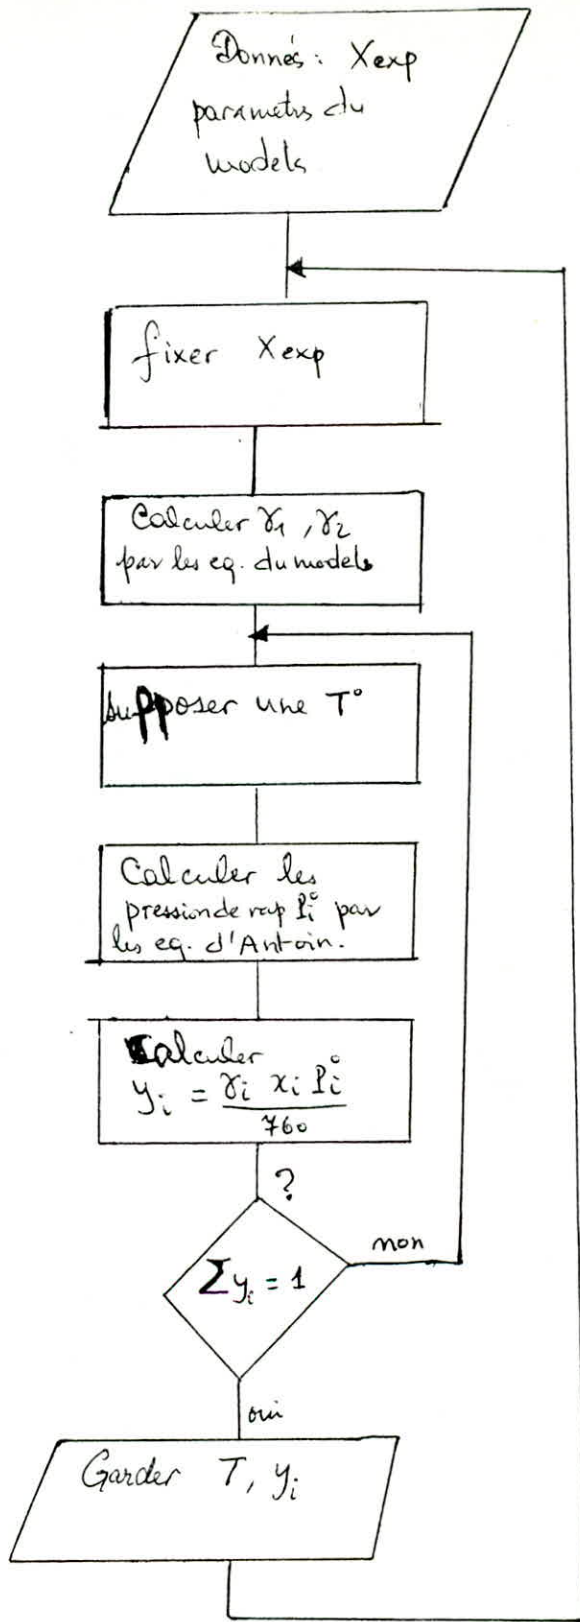 Donnés : Xexp
parametrs du
models
fixer Xexp
Calculer γ1 , γ2
par les eq. du models
supposer une T°
Calculer les
pression de vap Pi° par
les eq. d'Antoin.
Calculer
yi = γi xi Pi° / 760
?
Σyi = 1
non
oui
Garder T, yi